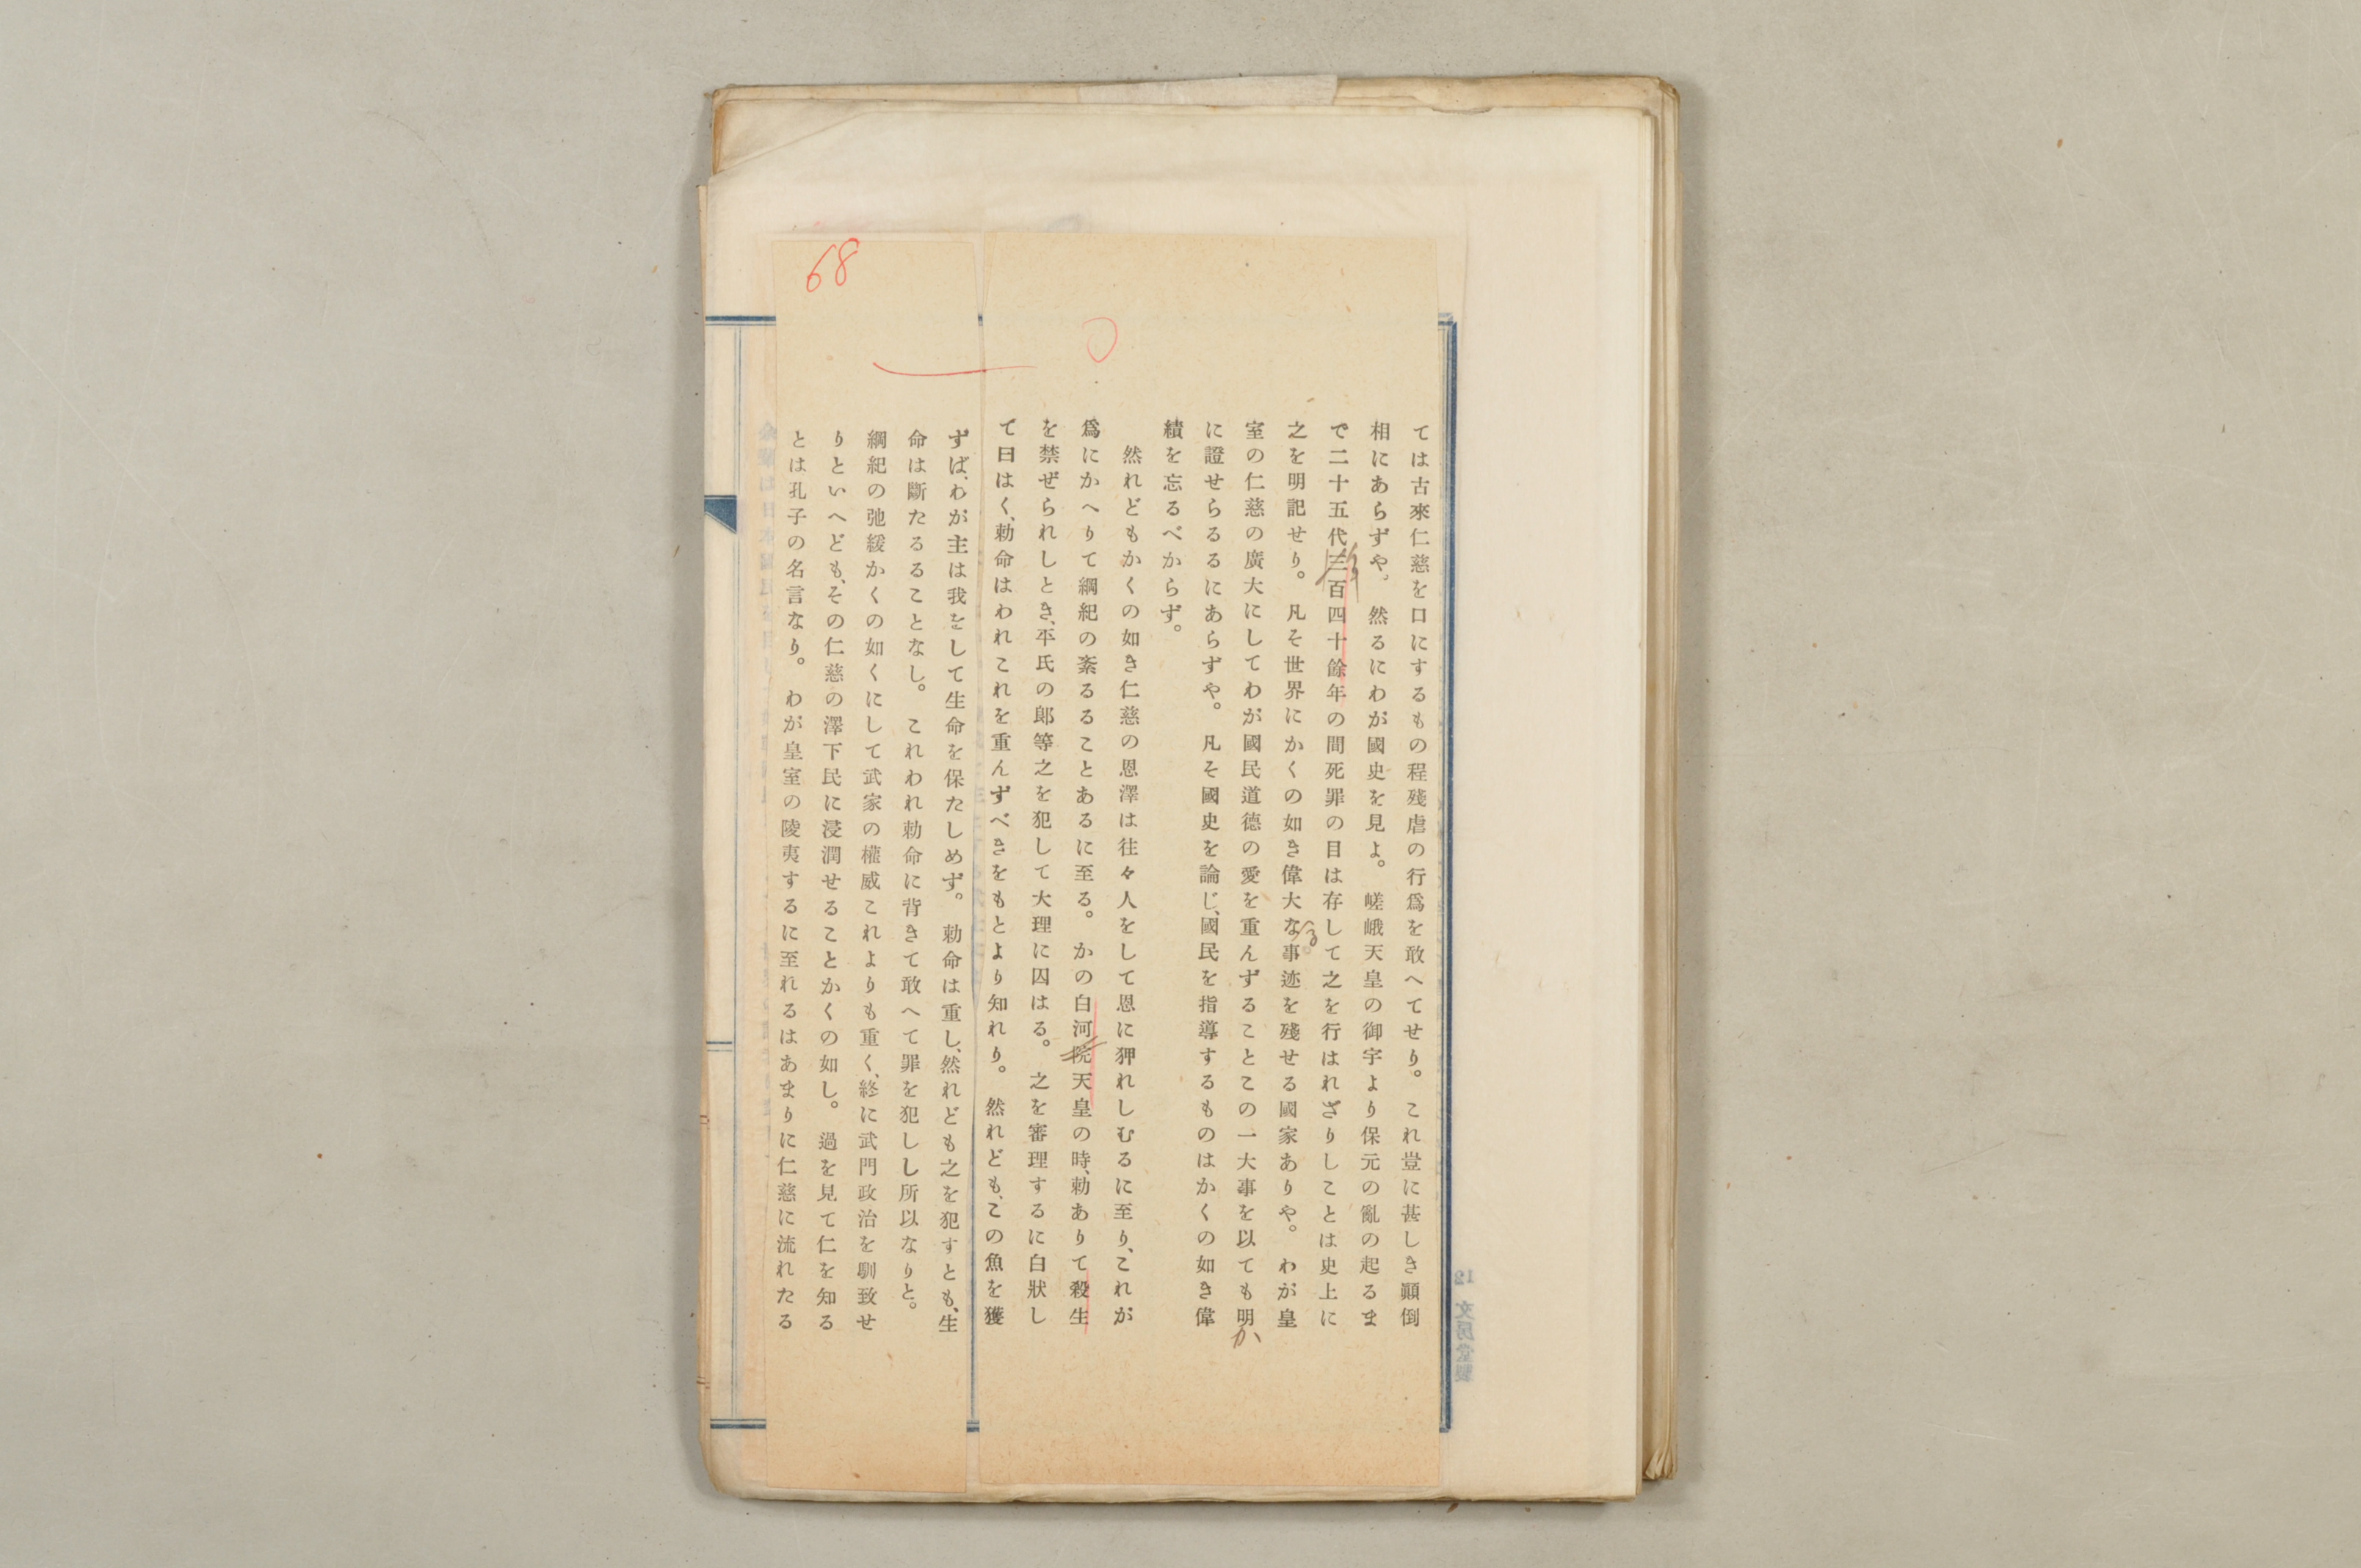 68
ては古來仁慈を口にするもの程殘虐の行爲を敢へてせり。これ豈に甚しき顚倒
相にあらずや。然るにわが國史を見よ。嵯峨天皇の御宇より保元の亂の起るま
で二十五代三百四十餘年の間死罪の目は存して之を行はれざりしことは史上に
之を明記せり。凡そ世界にかくの如き偉大な事迹を殘せる國家ありや。わが皇
る
室の仁慈の廣大にしてわが國民道德の愛を重んずることこの一大事を以ても明
か
に證せらるるにあらずや。凡そ國史を論じ、國民を指導するものはかくの如き偉
績を忘るべからず。
然れどもかくの如き仁慈の恩澤は往々人をして恩に狎れしむるに至り、これが
爲にかへりて綱紀の紊るることあるに至る。かの白河院天皇の時、勅ありて殺生
を禁ぜられしとき、平氏の郞等之を犯して大理に囚はる。之を審理するに白狀し
て曰はく、勅命はわれこれを重んずべきをもとより知れり。然れども、この魚を獲
ずば、わが主は我をして生命を保たしめず。勅命は重し、然れども之を犯すとも、生
命は斷たるることなし。これわれ勅命に背きて敢へて罪を犯しし所以なりと。
綱紀の弛緩かくの如くにして武家の權威これよりも重く、終に武門政治を馴致せ
りといへども、その仁慈の澤下民に浸潤せることかくの如し。過を見て仁を知る
とは孔子の名言なり。わが皇室の陵夷するに至れるはあまりに仁慈に流れたる
12 文房堂製